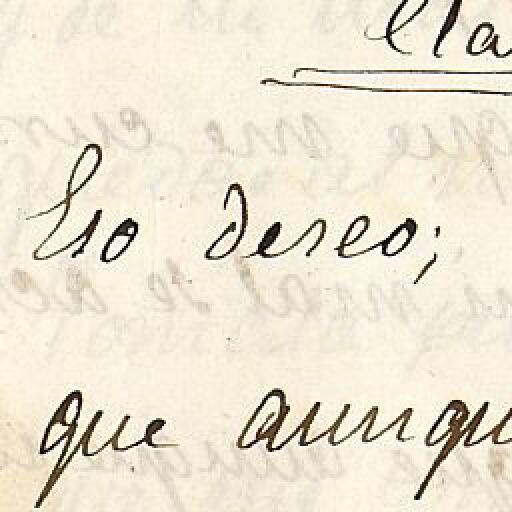 Eso deseo;
que aunqu